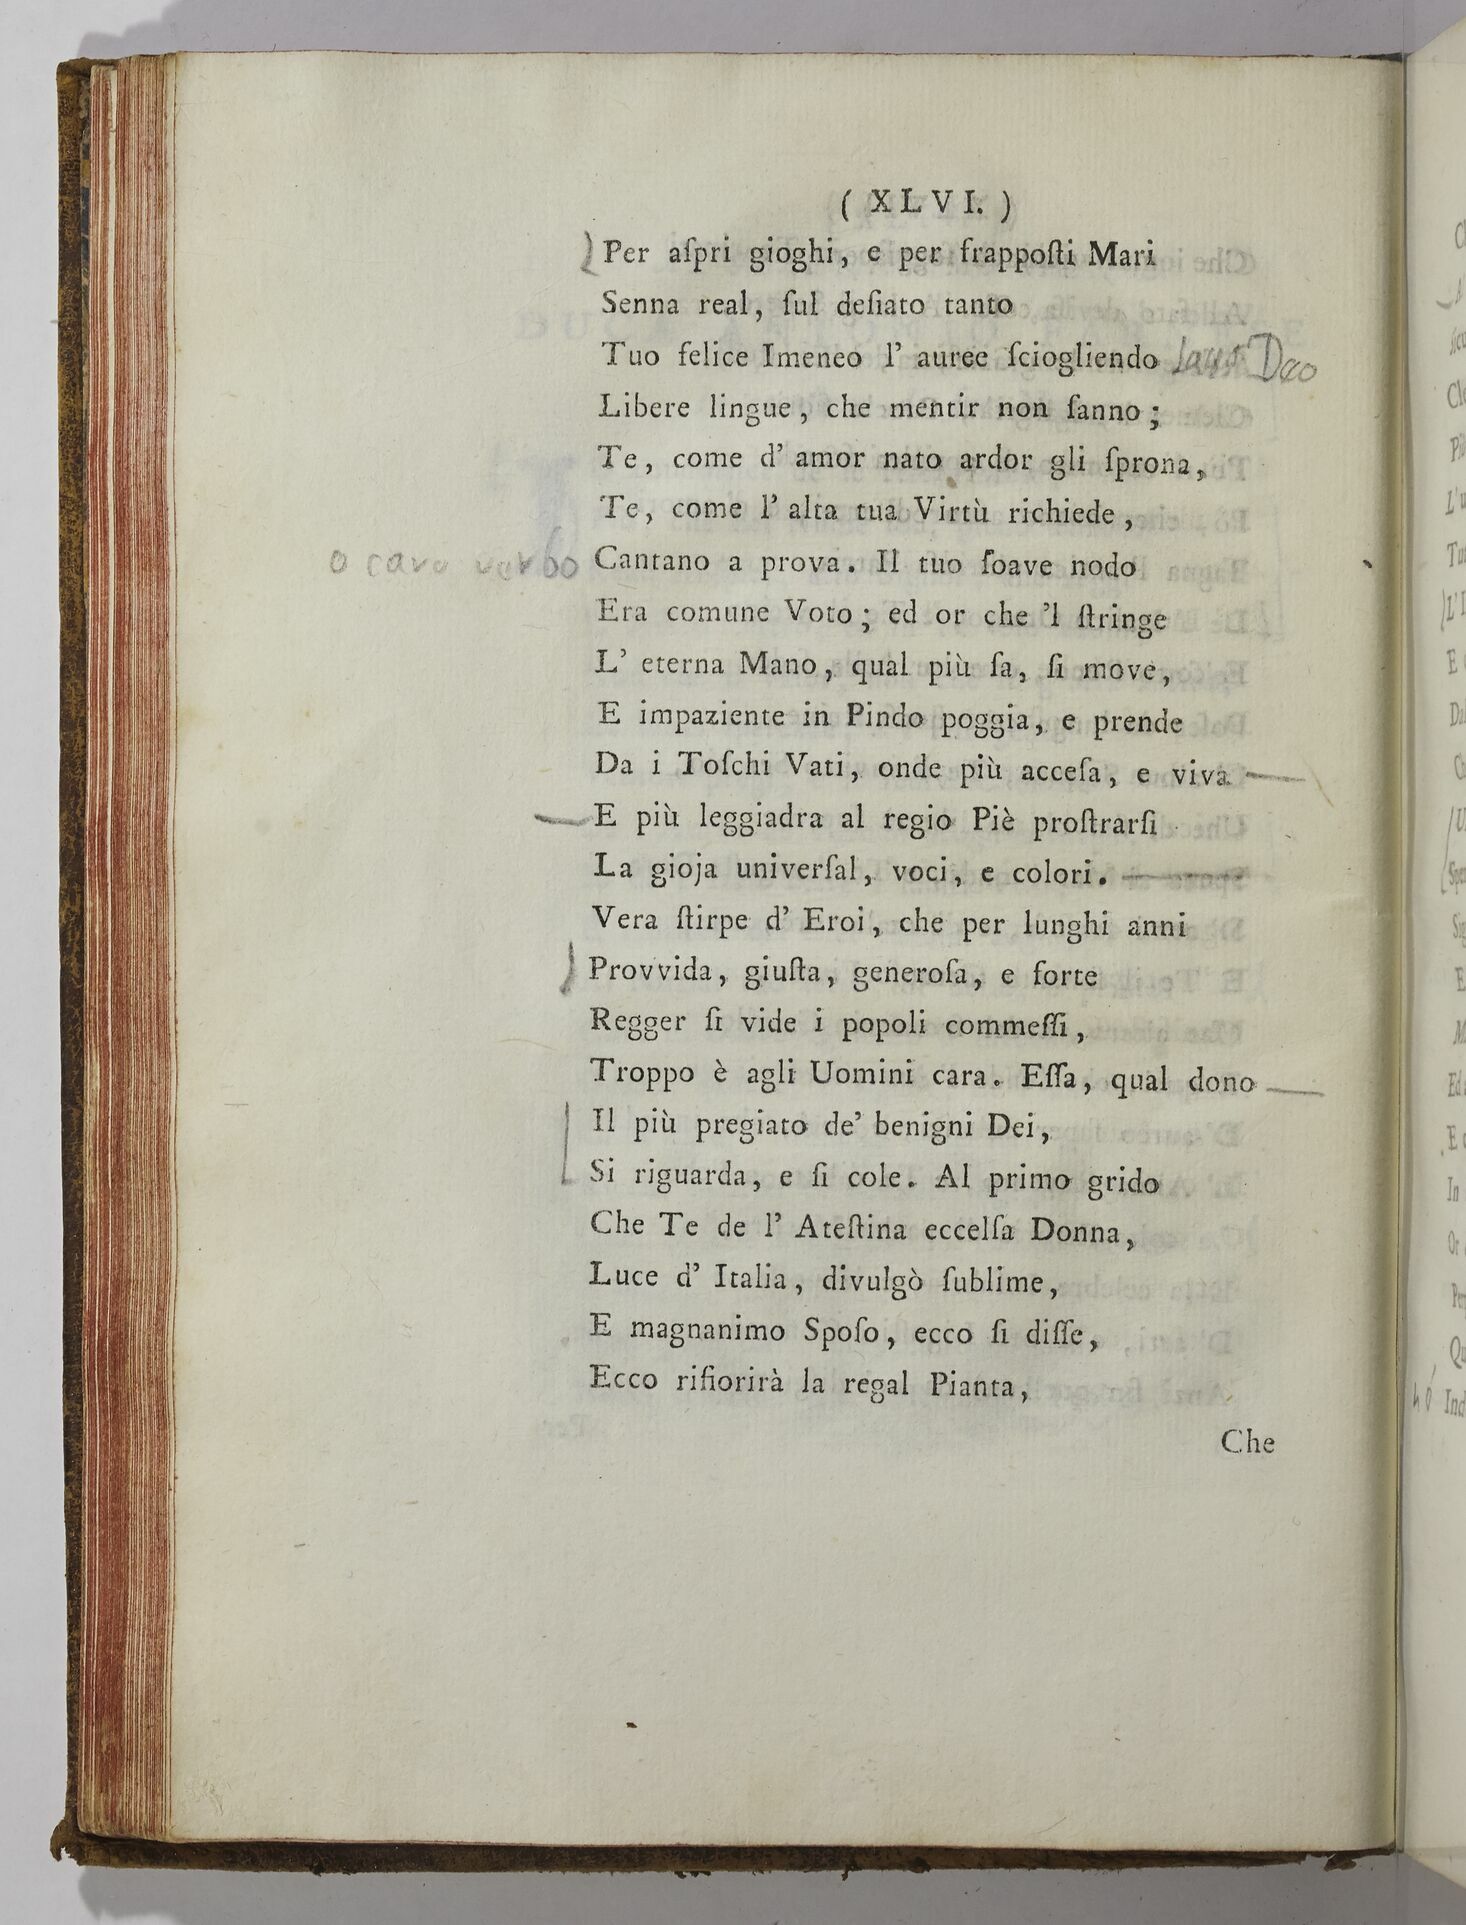 ( XLVI. )
Per aſpri gioghi, e per frappoſti Mari
Senna real, ſul deſiato tanto
Tuo felice Imeneo l' auree ſciogliendo laus Deo
Libere lingue, che mentir non ſanno;
Te, come d' amor nato ardor gli ſprona,
Te, come l' alta tua Virtù richiede,
o caro verbo Cantano a prova. Il tuo ſoave nodo
Era comune Voto; ed or che 'l ſtringe
L' eterna Mano, qual più ſa, ſi move,
E impaziente in Pindo poggia, e prende
Da i Toſchi Vati, onde più acceſa, e viva
E più leggiadra al regio Piè proſtrarſi
La gioja univerſal, voci, e colori.
Vera ſtirpe d' Eroi, che per lunghi anni
Provvida, giuſta, generoſa, e forte
Regger ſi vide i popoli commeſſi,
Troppo è agli Uomini cara. Eſſa, qual dono
Il più pregiato de' benigni Dei,
Si riguarda, e ſi cole. Al primo grido
Che Te de l' Ateſtina eccelſa Donna,
Luce d' Italia, divulgò ſublime,
E magnanimo Spoſo, ecco ſi diſſe,
Ecco rifiorirà la regal Pianta,
Che